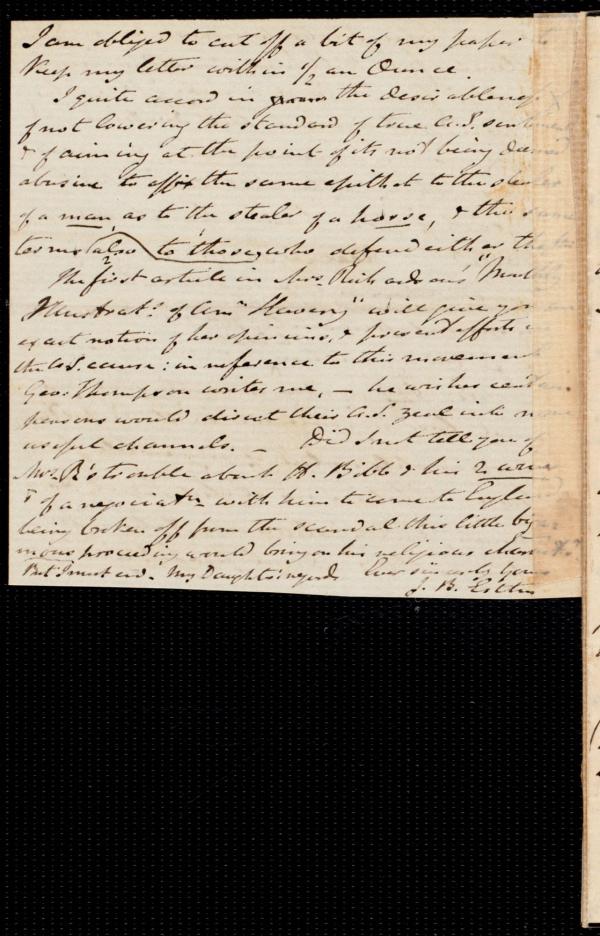 I am obliged to cut off a bit of my paper to
Keep my letter within 1/2 an Ounce.
I quite accord in the desirableness
of not lowering the standard of true A.S. sentiment
& of aiming at the point of its not being deemed
abusive to affix the same epithet to the stealer
of a man, as to the stealer of a horse, & the same
terms also to those, who defend either the
The first article in Mrs. Richardson's "
Illustrats. of Amn. Slavery" will give you
exact notion of her opinions, & present efforts in
the A.S. cause: in reference to this movement
Geo: Thompson writes me, — he wishes certain
persons would direct their A.S. zeal into more
useful channels. — Did I not tell you of
Mrs. R's trouble about H. Bibb & his 2 wives
& of a negociatn. with him to come to England
being broken off from the scandal this little bigamous
mous proceeding would bring on his religious
But I must end. My Daughters' regards Ever sincerely Yours
J. B. Estlin